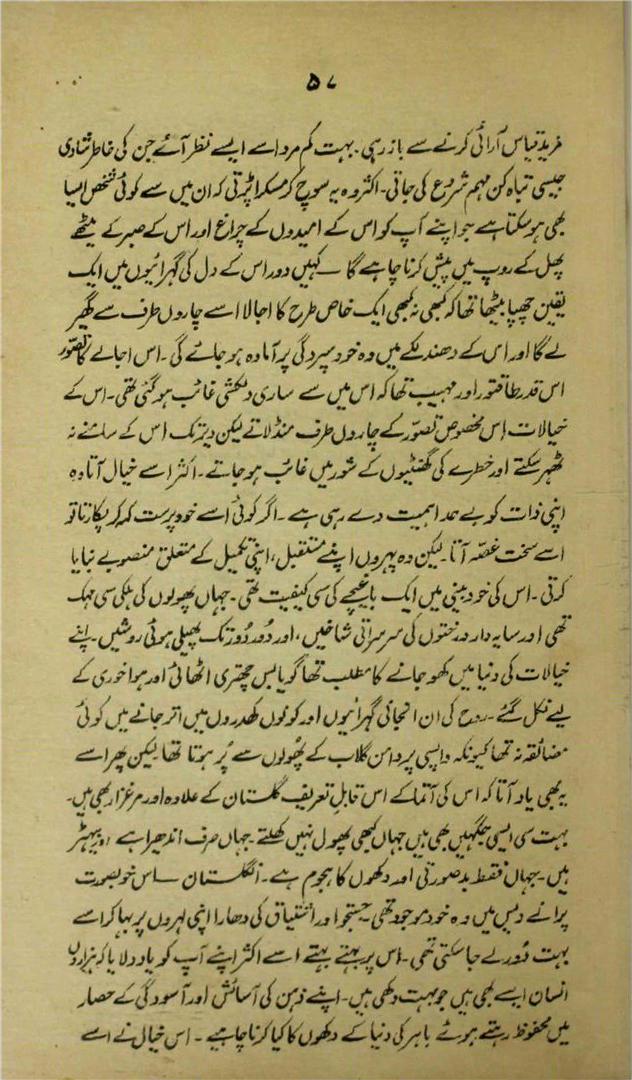 ۵۷
مزید قیاس آرائی کرنے سے باز رہی۔ بہت کم مرد اسے ایسے نظر آئے جن کی خاطر شادی
جیسی تباہ کن مہم شروع کی جاتی۔ اکثر وہ یہ سوچ کر مسکرا پڑتی کہ ان میں سے کوئی شخص ایسا
بھی ہو سکتا ہے جو اپنے آپ کو اس کے امیدوں کے چراغ اور اس کے صبر کے میٹھے
پھل کے روپ میں پیش کرنا چاہے گا ــ کہیں دور اس کے دل کی گہرائیوں میں ایک
یقین چھپا بیٹھا تھا کہ کبھی نہ کبھی ایک خاص طرح کا اجالا اسے چاروں طرف سے گھیر
لے گا اور اس کے دھندلکے میں وہ خود سپردگی پر آمادہ ہو جائے گی۔ اس اجالے کا تصوّر
اس قدر طاقتور اور مہیب تھا کہ اس میں سے ساری دلکشی غائب ہو گئی تھی۔ اس کے
خیالات اس مخصوص تصوّر کے چاروں طرف منڈلاتے لیکن دیر تک اس کے سامنے نہ
ٹھہر سکتے اور خطرے کی گھنٹیوں کے شور میں غائب ہو جاتے۔ اکثر اسے خیال آتا وہ
اپنی ذات کو بے حد اہمیت دے رہی ہے۔ اگر کوئی اسے خود پرست کہہ کر پکارتا تو
اسے سخت غصّہ آتا۔ لیکن وہ پہروں اپنے مستقبل، اپنی تکمیل کے متعلق منصوبے بنایا
کرتی۔ اس کی خود بینی میں ایک باغیچے کی سی کیفیت تھی۔ جہاں پھولوں کی ہلکی سی مہک
تھی اور سایہ دار درختوں کی سرسراتی شاخیں، اور دُور دُور تک پھیلی ہوئی روشیں۔ اپنے
خیالات کی دنیا میں کھو جانے کا مطلب تھا گویا بس چھتری اٹھائی اور ہوا خوری کے
لیے نکل گئے۔ روح کی ان انجانی گہرائیوں اور کونوں کھدروں میں اتر جانے میں کوئی
مضائقہ نہ تھا کیونکہ واپسی پر دامن گلاب کے پھُولوں سے پُر ہوتا تھا لیکن پھر اسے
یہ بھی یاد آتا کہ اس کی آتما کے اس قابلِ تعریف گلستان کے علاوہ اور مرغزار بھی ہیں۔
بہت سی ایسی جگہیں بھی ہیں جہاں کبھی پھول نہیں کھلتے۔ جہاں صرف اندھیرا ہے، ویہڑ
ہیں۔ جہاں فقط بدصورتی اور دکھوں کا ہجوم ہے۔ انگلستان ــ اس خوبصورت
پرانے دیس میں وہ خود موجود تھی۔ جستجو اور اشتیاق کی دھارا اپنی لہروں پر بہا کر اسے
بہت دُور لے جا سکتی تھی۔ اس پر بہتے بہتے اسے اکثر اپنے آپ کو یاد دلایا کہ ہزاروں
انسان ایسے بھی ہیں جو بہت دکھی ہیں۔ اپنے ذہن کی آسائش اور آسودگی کے حصار
میں محفوظ رہتے ہوئے باہر کی دنیا کے دکھوں کا کیا کرنا چاہیے۔ اس خیال نے اسے